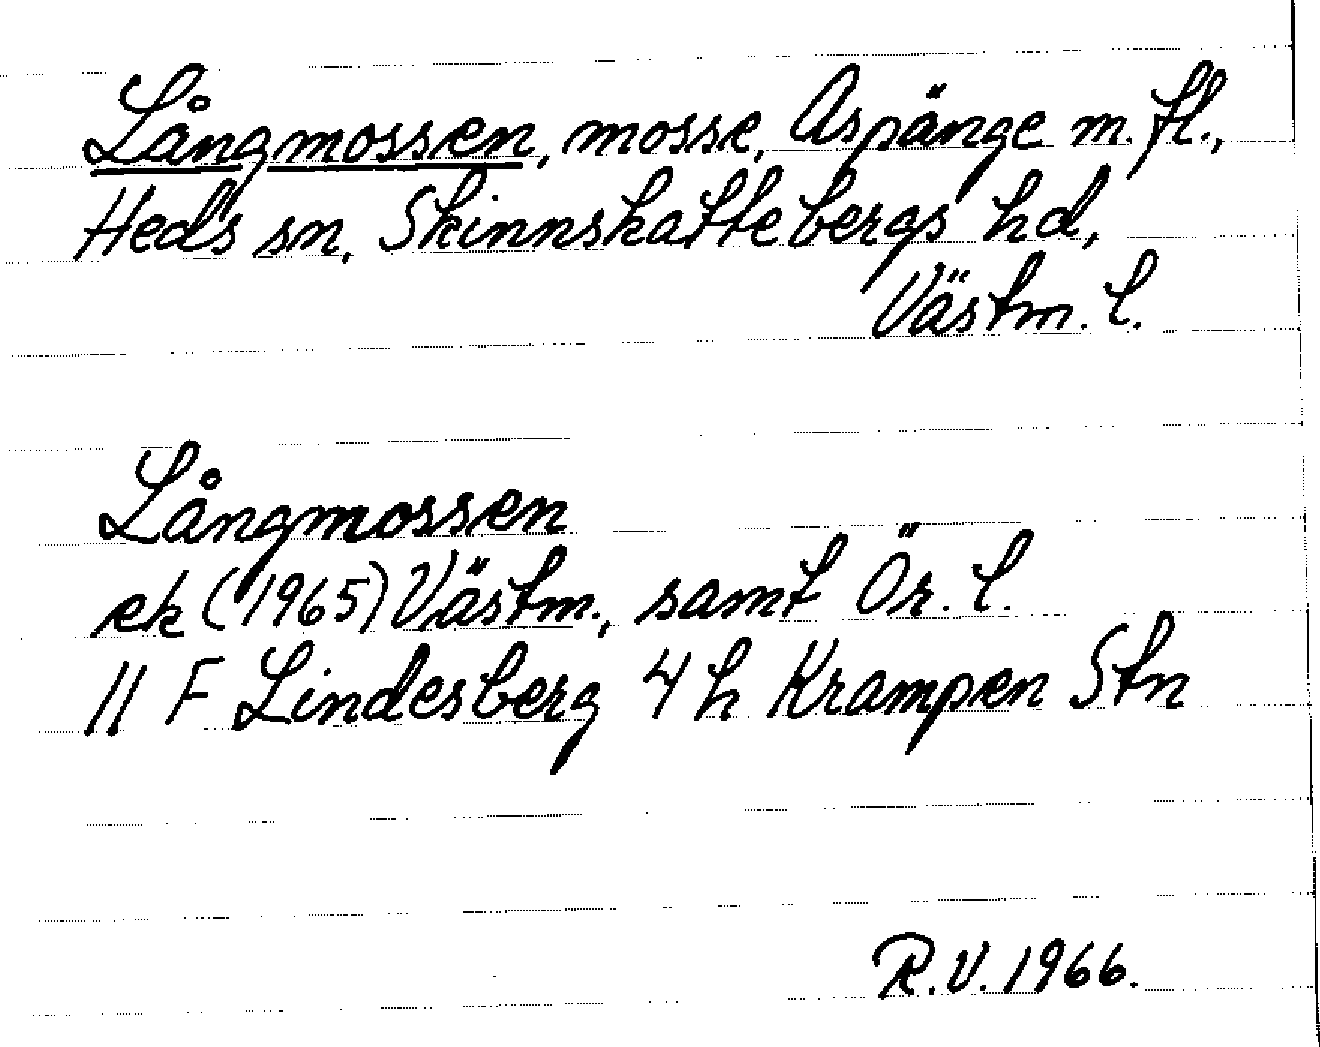 Långmossen, mosse, Aspänge m. fl.,
Heds sn, Skinnskattebergs hd,
Västm. l.
Långmossen
ek (1965) Västm., samt Ör. l.
11 F Lindesberg 4 h Krampen Stn
R.V. 1966.